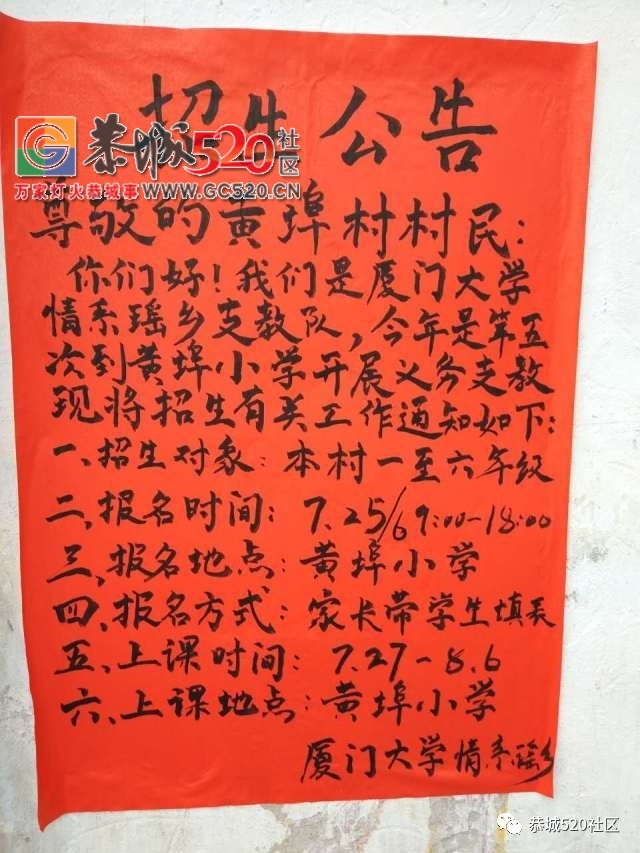 招生公告
恭城520社区
万家灯火恭城事 WWW.GC520.CN
尊敬的黄埠村村民：
你们好！我们是厦门大学
情系瑶乡支教队，今年是第五
次到黄埠小学开展义务支教
现将招生有关工作通知如下：
一、招生对象：本村一至六年级
二、报名时间：7.25/6 9:00-18:00
三、报名地点：黄埠小学
四、报名方式：家长带学生填表
五、上课时间：7.27-8.6
六、上课地点：黄埠小学
厦门大学情系瑶乡
恭城520社区